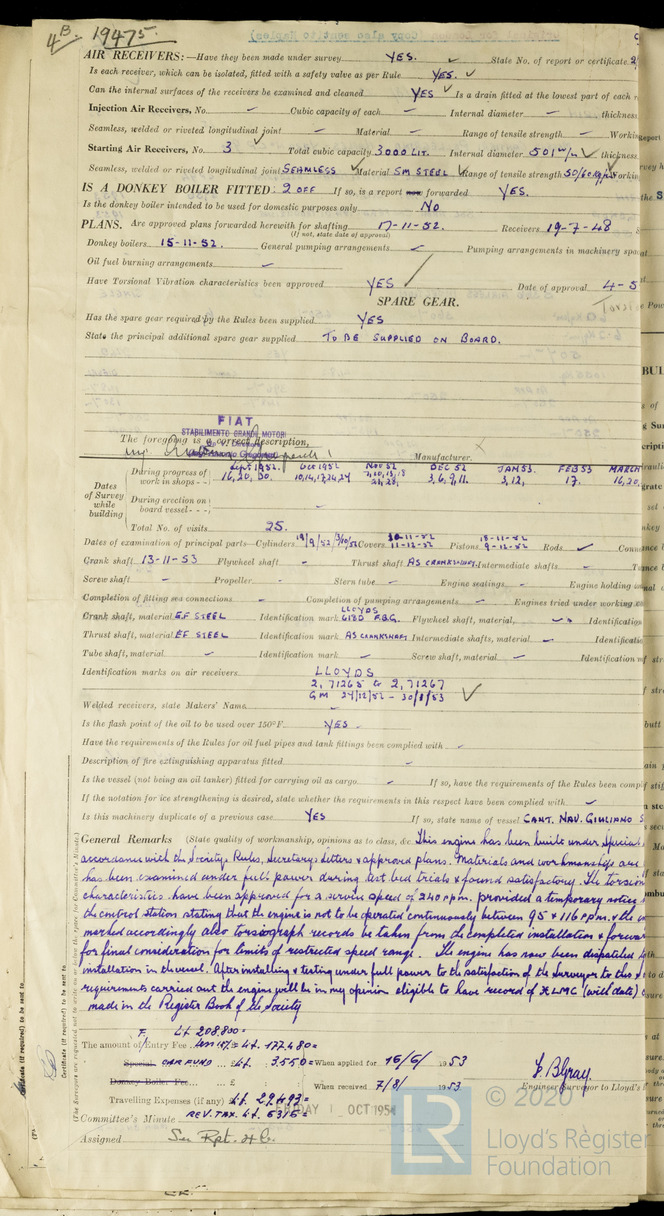 4B. 19475.
AIR RECEIVERS:—Have they been made under survey YES. ✓ State No. of report or certificate 2
Is each receiver, which can be isolated, fitted with a safety valve as per Rule YES. ✓
Can the internal surfaces of the receivers be examined and cleaned YES ✓ Is a drain fitted at the lowest part of each r
Injection Air Receivers, No. – Cubic capacity of each – Internal diameter – thickness
Seamless, welded or riveted longitudinal joint – Material – Range of tensile strength – Working
Starting Air Receivers, No. 3 ✓ Total cubic capacity 3000 LIT. Internal diameter 501 m/m ✓ thickness
Seamless, welded or riveted longitudinal joint SEAMLESS ✓ Material SM STEEL ✓ Range of tensile strength 50/60 Working
IS A DONKEY BOILER FITTED: 2 OFF If so, is a report now forwarded YES.
Is the donkey boiler intended to be used for domestic purposes only NO
PLANS. Are approved plans forwarded herewith for shafting 17-11-52. Receivers 19-7-48
(If not, state date of approval)
Donkey boilers 15-11-52. General pumping arrangements – Pumping arrangements in machinery spa
Oil fuel burning arrangements –
Have Torsional Vibration characteristics been approved YES ✓ Date of approval 4-5
SPARE GEAR.
Has the spare gear required by the Rules been supplied YES
State the principal additional spare gear supplied TO BE SUPPLIED ON BOARD.
FIAT
STABILIMENTO GRANDI MOTORI
The foregoing is a correct description,
Manufacturer.
Dates of Survey while building
During progress of work in shops - - Sept 1952. 16, 20, 30. Oct 1952 10,14,17,24,29 Nov 52 DEC 52 3,6,9,11. JAN 53. 3,12, FEB 53 17. MARCH 16,20,
During erection on board vessel - - - –
Total No. of visits 25.
Dates of examination of principal parts—Cylinders Covers 11-12-52 Pistons 18-11-52 9-12-52 Rods ✓ Conne
Crank shaft 13-11-53 Flywheel shaft – Thrust shaft AS CRANKSHAFT Intermediate shafts – T
Screw shaft – Propeller – Stern tube – Engine seatings – Engine holding
Completion of fitting sea connections – Completion of pumping arrangements – Engines tried under working
Crank shaft, material E.F STEEL Identification mark LLOYDS 6180 F.B.G. Flywheel shaft, material, – Identification
Thrust shaft, material EF STEEL Identification mark AS CRANKSHAFT Intermediate shafts, material – Identificatio
Tube shaft, material – Identification mark – Screw shaft, material – Identification m
Identification marks on air receivers. LLOYDS
2,71265 to 2,71267
GM 24/12/52 – 30/1/53 ✓
Welded receivers, state Makers' Name –
Is the flash point of the oil to be used over 150°F. YES –
Have the requirements of the Rules for oil fuel pipes and tank fittings been complied with –
Description of fire extinguishing apparatus fitted –
Is the vessel (not being an oil tanker) fitted for carrying oil as cargo – If so, have the requirements of the Rules been compl
If the notation for ice strengthening is desired, state whether the requirements in this respect have been complied with –
Is this machinery duplicate of a previous case YES If so, state name of vessel CANT. NAV. GIULIANO S
General Remarks (State quality of workmanship, opinions as to class, &c. This engine has been built under Special
accordance with the Society's Rules, Secretary's letters & approved plans. Materials and workmanship are
has been examined under full power during test bed trials & found satisfactory. The torsion
characteristics have been approved for a service speed of 240 rpm. provided a temporary notice
the control station stating that the engine is not to be operated continuously between 95 & 116 rpm. & the
marked accordingly also torsiograph records be taken from the completed installation & forwar
for final consideration for limits of restricted speed range. The engine has now been dispatched
installation in the vessel. After installing & testing under full power to the satisfaction of the Surveyor to this S
requirements carried out the engine will be in my opinion eligible to have record of ✠LMC (with date)
made in the Register Book of the Society
Lt 208,800=
The amount of Entry Fee Lt. 177,480=
Special CAR FUND Lt. 3.550= When applied for 16/6/ 1953
Donkey Boiler Fee ... £ When received 7/8/ 1953
Travelling Expenses (if any) Lt. 29.493=
REV. TAX. Lt. 6315=
F. B. Gray.
Engineer Surveyor to Lloyd's
Committee's Minute FRIDAY 1 OCT 1954
Assigned See Rpt. 4c.
© 2020
LR
Lloyd's Register
Foundation